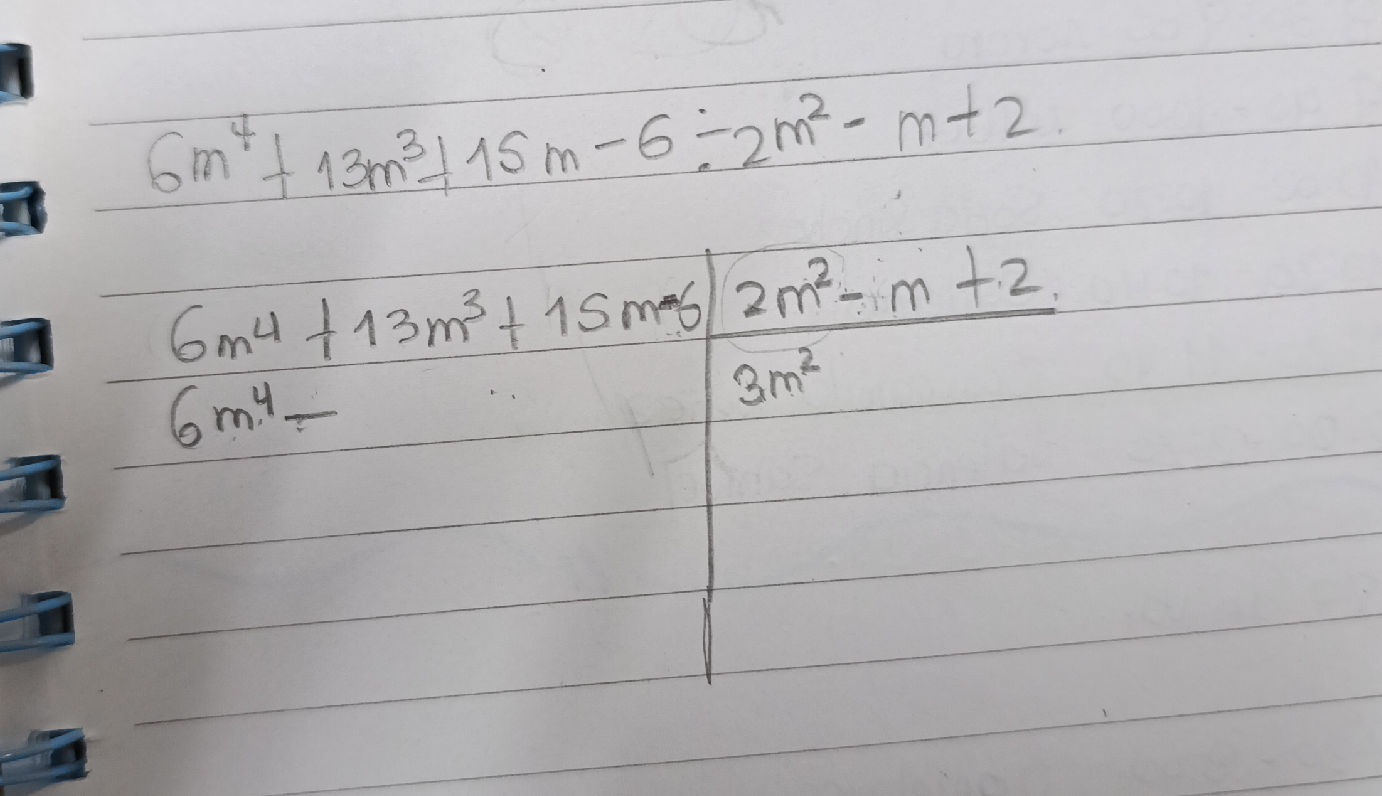 6m⁴ + 13m³ + 15m - 6 ÷ 2m² - m + 2.
6m⁴ + 13m³ + 15m - 6 | 2m² - m + 2.
6m⁴ - | 3m²